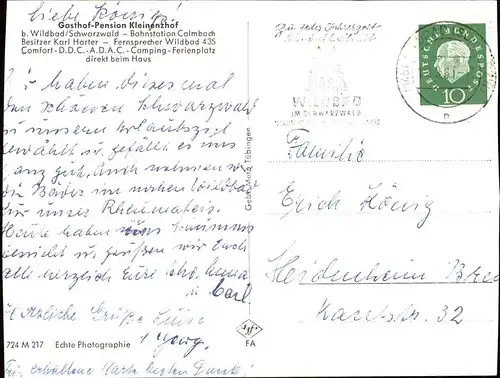 liebe König!
Gasthof-Pension Kleinenzhof
b. Wildbad/Schwarzwald – Bahnstation Calmbach
Besitzer Karl Harter – Fernsprecher Wildbad 435
Comfort-D.D.C.-A.D.A.C.-Camping-Ferienplatz
direkt beim Haus
den schönen Schwarzwald
zu unserem Urlaubsziel
gewählt u. gefällt es uns
ganz gut. Auch nehmen wir
die Bäder im nahen Wildbad
für unser Rheumatis.
Heute haben uns
u. grüßen wir Euch
alle herzlich Eure
u. Carl
Herzliche Grüße Luise
+ Georg.
724 M 217 Echte Photographie
erhaltene Karte besten Dank!
Gebr. Metz, Tübingen
FA
Zu jeder Jahreszeit
WILDBAD
IM SCHWARZWALD
DEUTSCHE BUNDESPOST
10
Familie
Erich König
Heidenheim Brenz
Karlstr. 32